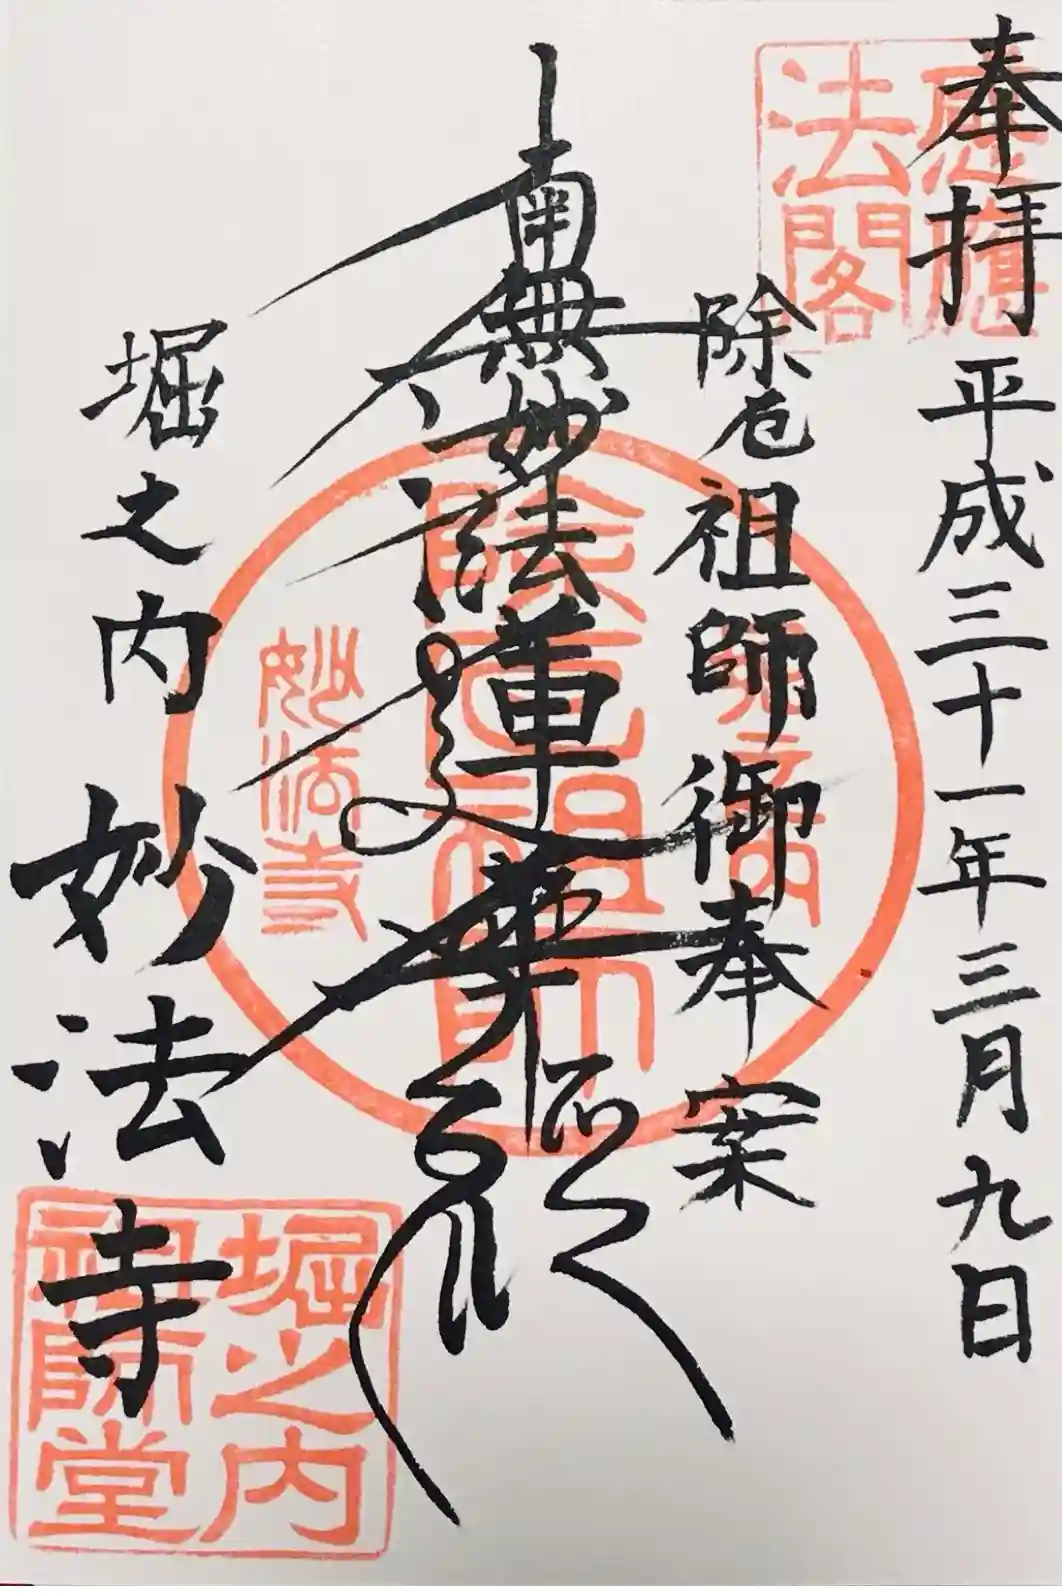 奉拝 平成三十一年三月九日
除厄祖師御奉案
南無妙法蓮華経
堀之内 妙法寺
感應
法閣
除厄祖師
堀之内
妙法寺
堀之内
祖師堂